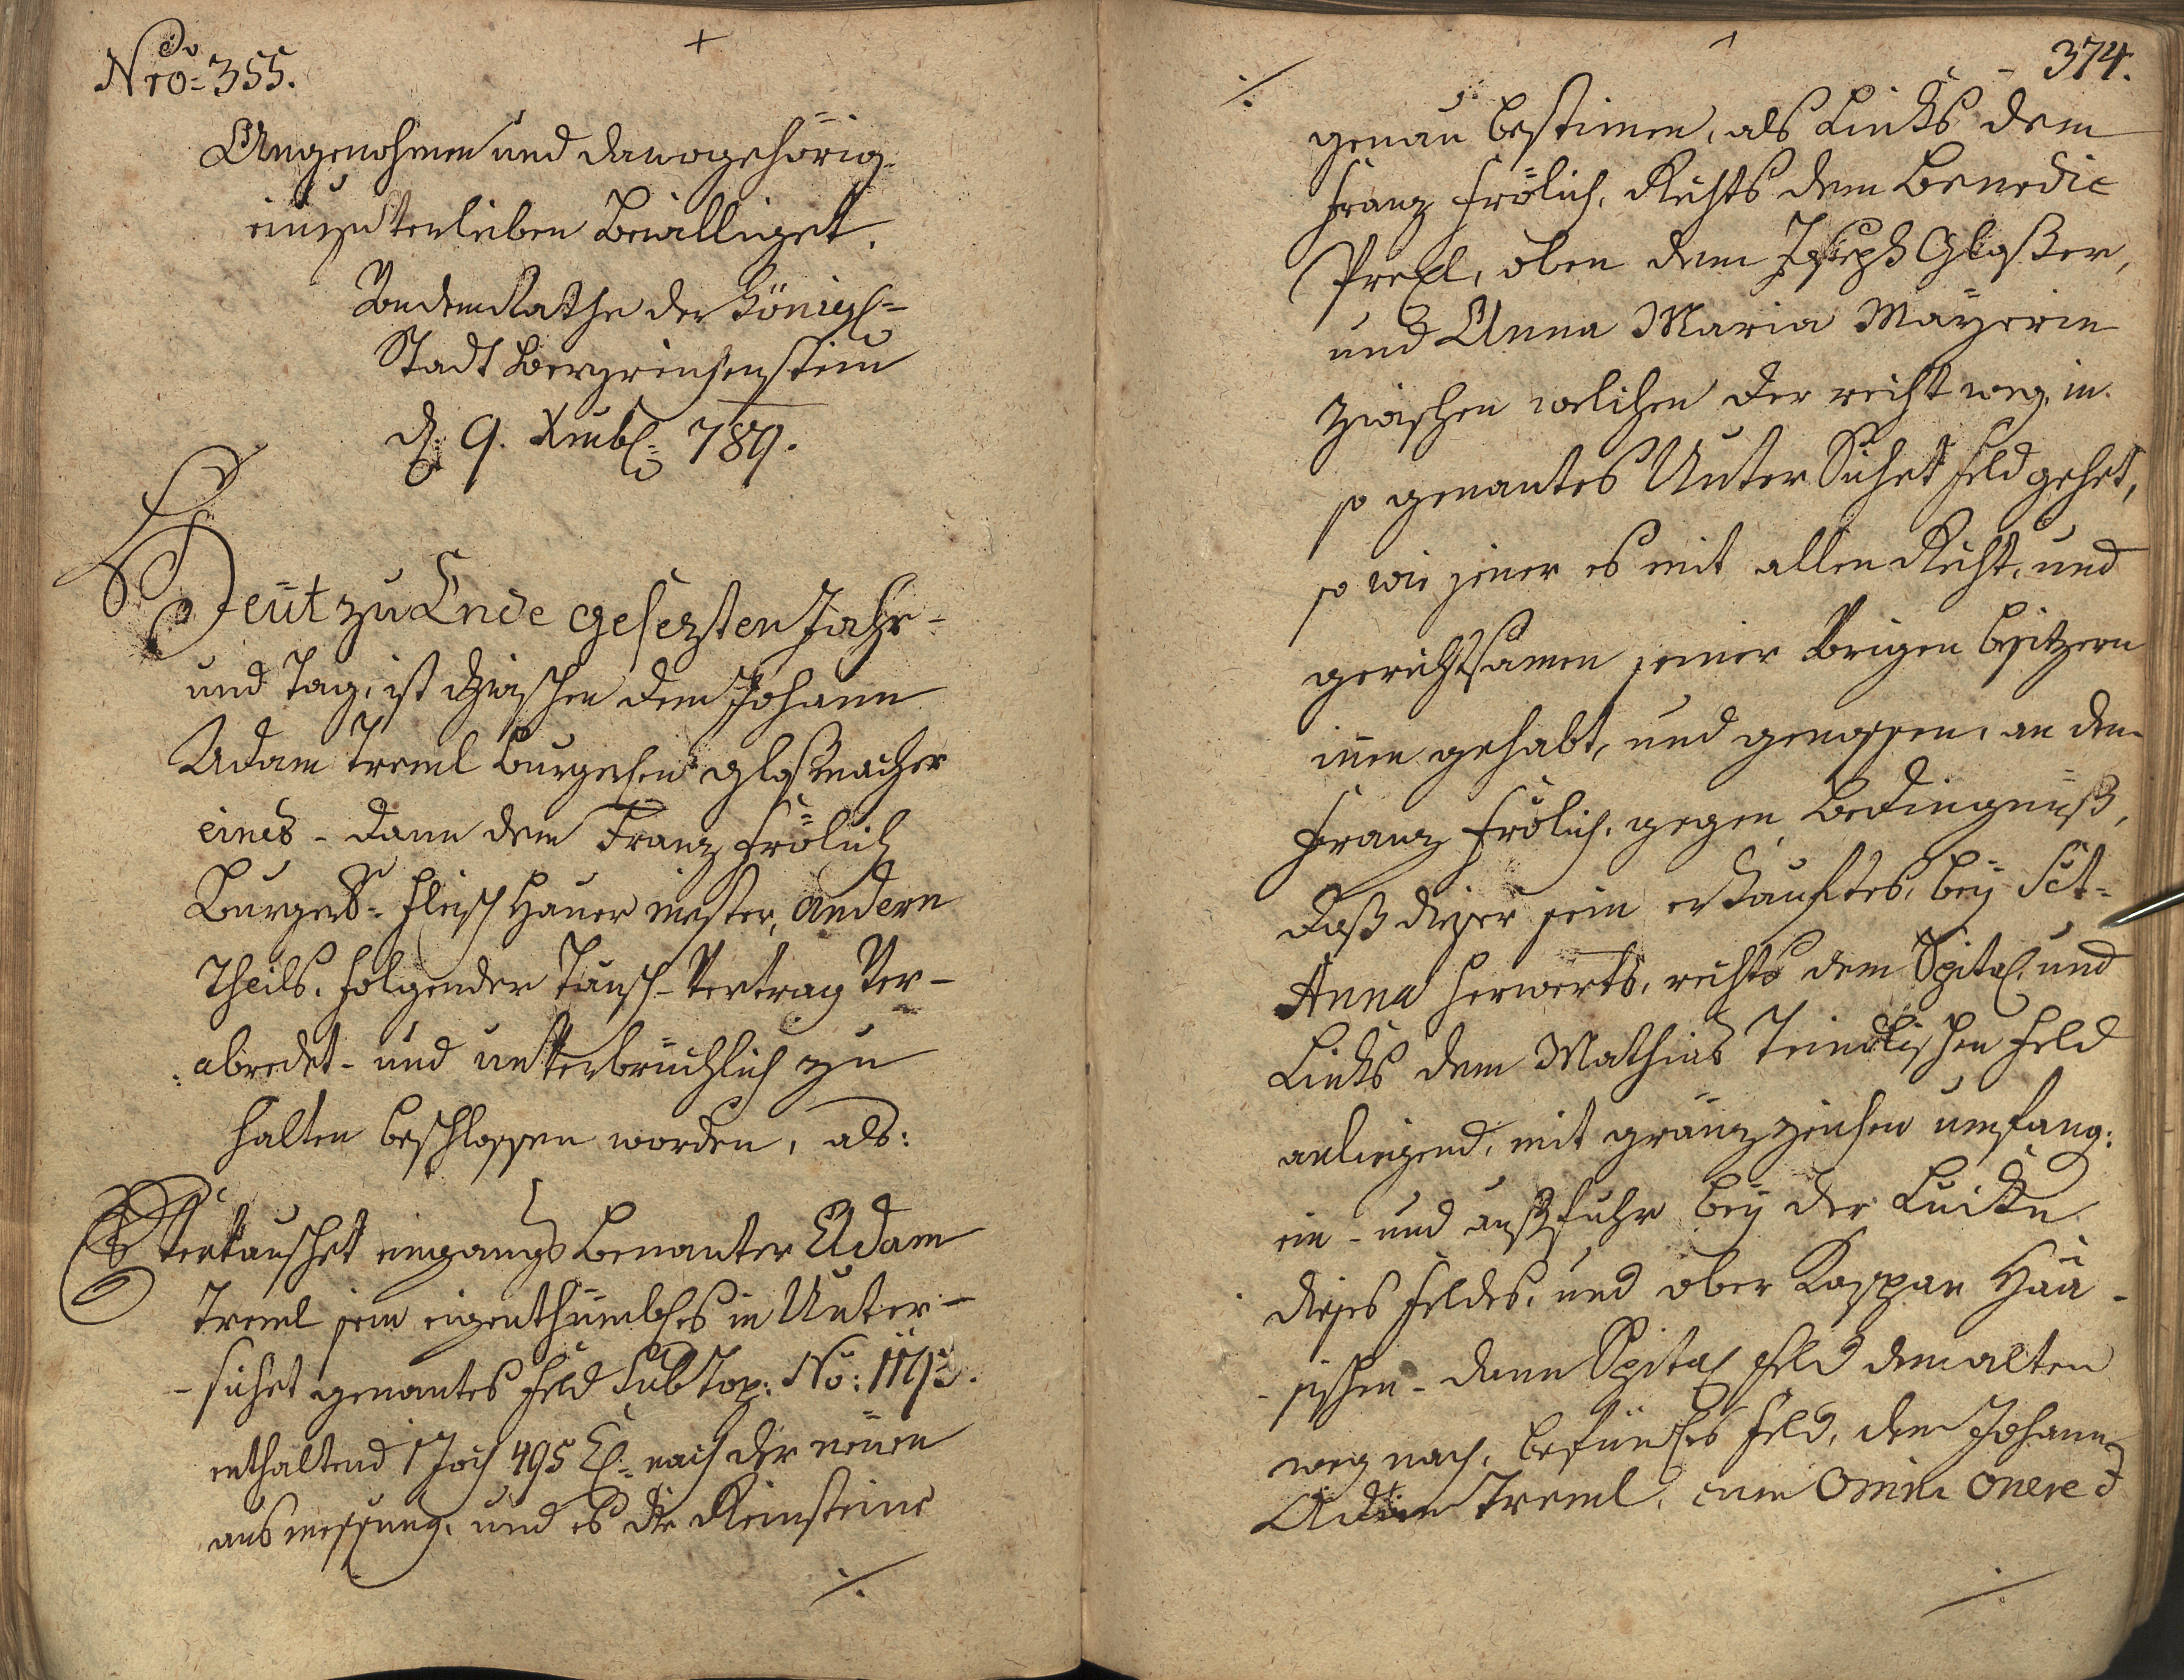 Nro: 355.
Angenohmen und danogehörig
einzuverleiben Bewilliget.
Von dem Rathe der Königl:
Stadt Bergreichenstein
d: 9. Xmbl: 789.
Heut zu Ende gesezten Jahr-
und Tag, ist zwischen dem Johann
Adam Treml Burgerlen Glaßmacher
eines - dann dem Franz Frölich
Burgerl: Fleisch Hauer mester, andern
Theils, folgender Tausch-Vertrag Ver-
abredet- und unverbrüchlich zu
halten beschlossen worden, als:
Vertauschet eingangs benanter Adam
Treml sein eigenthümbles in Unter-
sichet genantes Feld Sub Top: No:
enthaltend 1 Joch 495 nach der neüen
ausmessung, und es die Reinsteine
374.
genau bestimen, als Links dem
Franz Frölich, Rechts dem Benedic
oben dem Joseph Gloßer,
und Anna Maria Mayerin
zwischen welchen der recht weg, in
so genantes Unter Sichet Feld gehet,
so wie jener es mit allen Recht, und
gerichtsamen seiner Vorigen besitzern
innen gehabt, und genossen, an den
Franz Frölich, gegen Bedingnuß,
daß dieser sein erkauftes, bey Sct-
Anna herwerts, rechts dem Spital, und
Links dem Mathias Feld
anliegend, mit gränzzeichen umfang:
ein- und außfuhr bey der Lucken
dieses Feldes, und ober Kaspar Hää-
sischen- dann Spital Feld dem alten
weg nach, befündles Feld, dem Johann
Adam Treml, cum Omni Onere